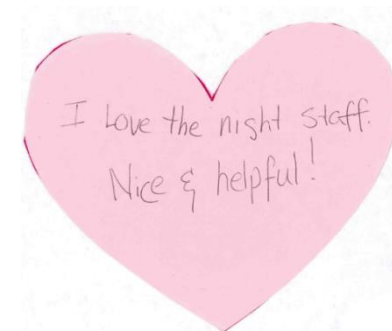 I Love the night staff.
Nice & helpful!